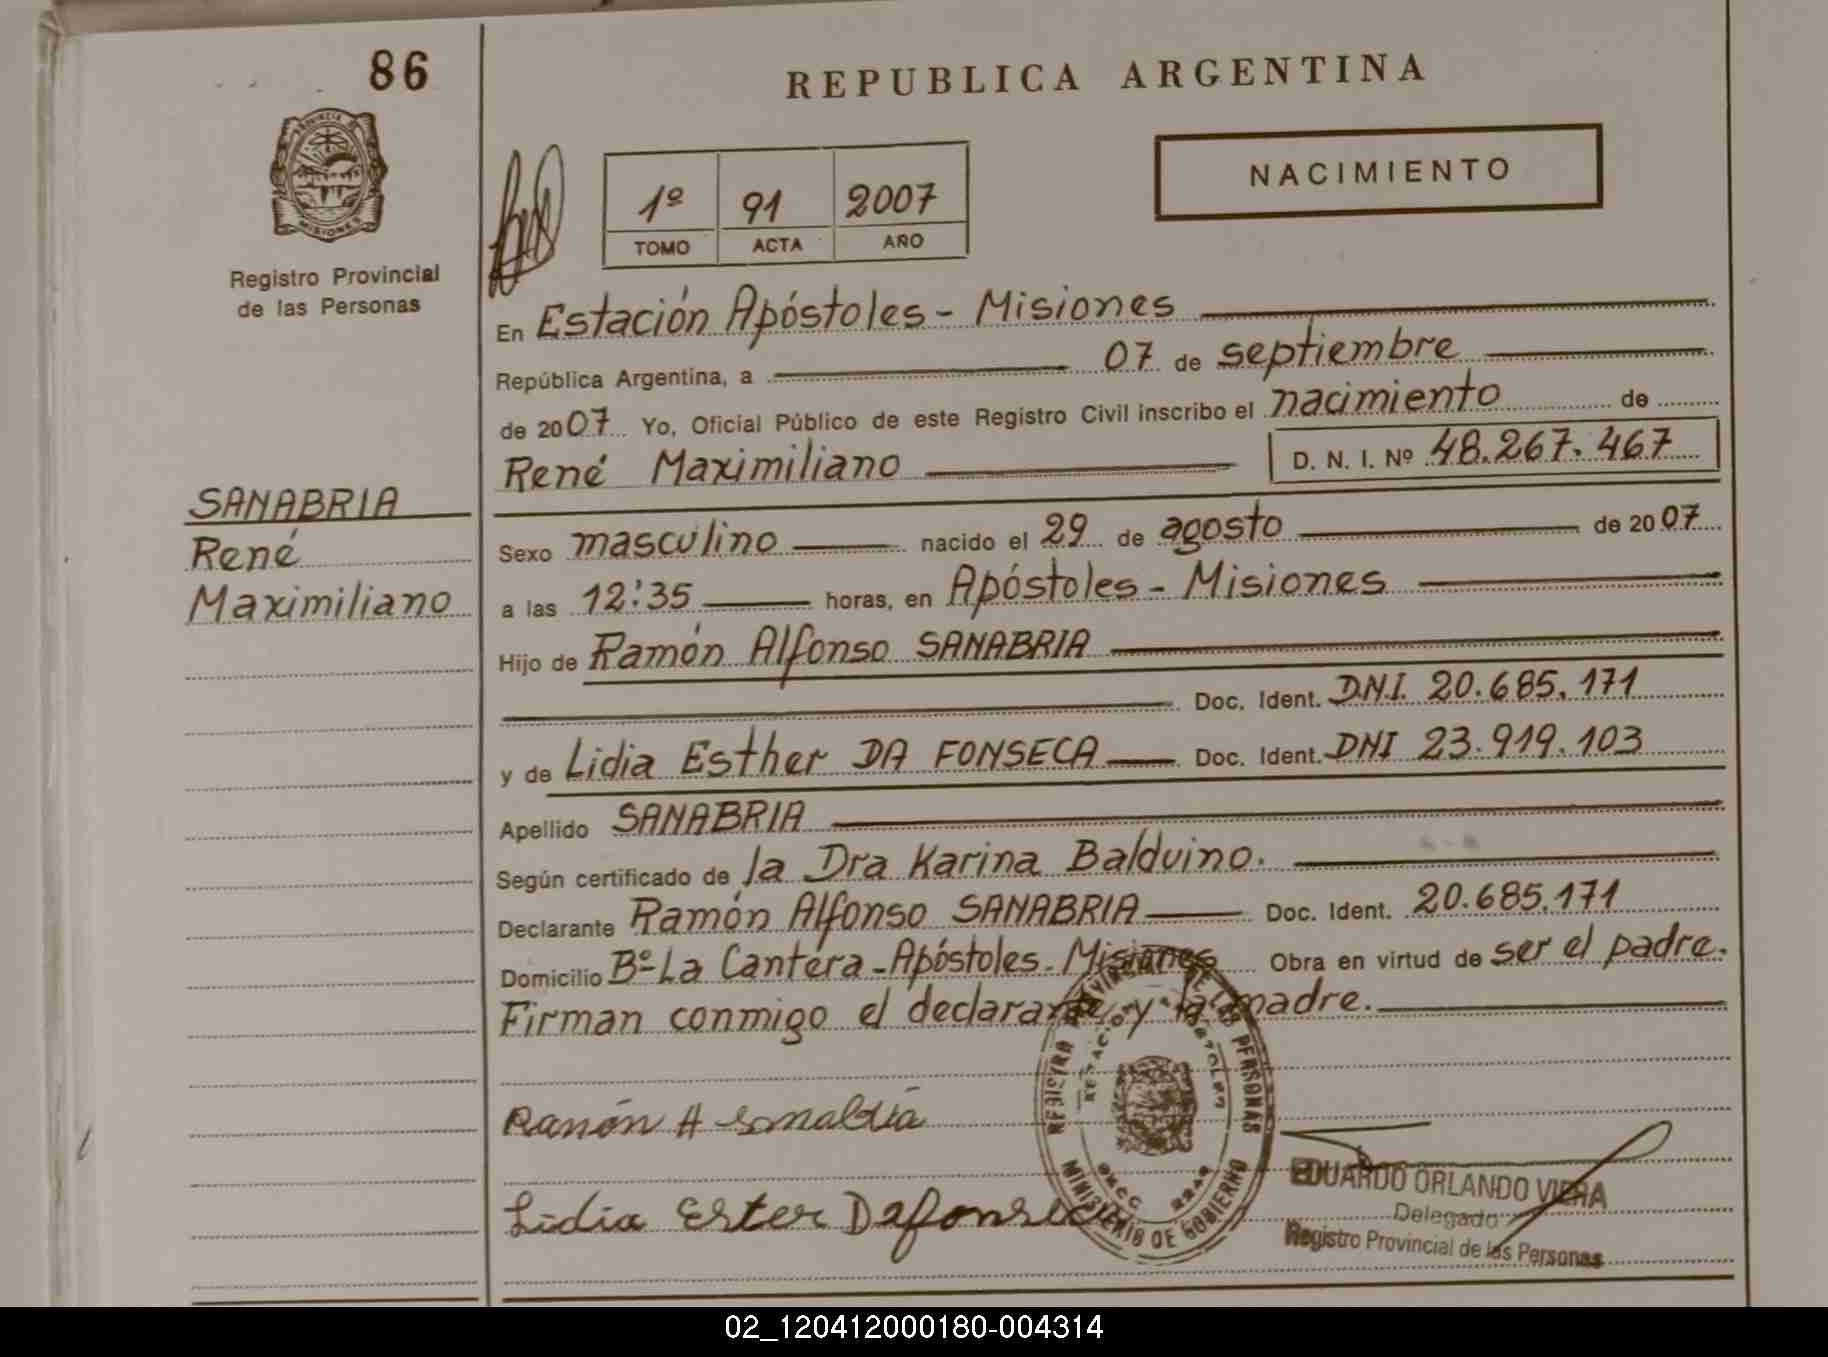 86
REPUBLICA ARGENTINA
PROVINCIA DE
MISIONES
Registro Provincial
de las Personas
1º 91 2007
TOMO ACTA AÑO
NACIMIENTO
En Estación Apóstoles - Misiones
República Argentina, a 07 de septiembre
de 2007 Yo, Oficial Público de este Registro Civil inscribo el nacimiento de
René Maximiliano D. N. I. Nº 48.267.467
SANABRIA
René
Maximiliano
Sexo masculino nacido el 29 de agosto de 2007
a las 12:35 horas, en Apóstoles - Misiones
Hijo de Ramón Alfonso SANABRIA
Doc. Ident. D.N.I. 20.685.171
y de Lidia Esther DA FONSECA Doc. Ident. DNI 23.919.103
Apellido SANABRIA
Según certificado de la Dra Karina Balduino.
Declarante Ramón Alfonso SANABRIA Doc. Ident. 20.685.171
Domicilio Bº La Cantera - Apóstoles - Misiones Obra en virtud de ser el padre.
Firman conmigo el declarante y la madre.
Ramón A
Lidia Ester Dafonseca
MINISTERIO DE GOBIERNO
EDUARDO ORLANDO VIERA
Delegado
Registro Provincial de las Personas
02_120412000180-004314